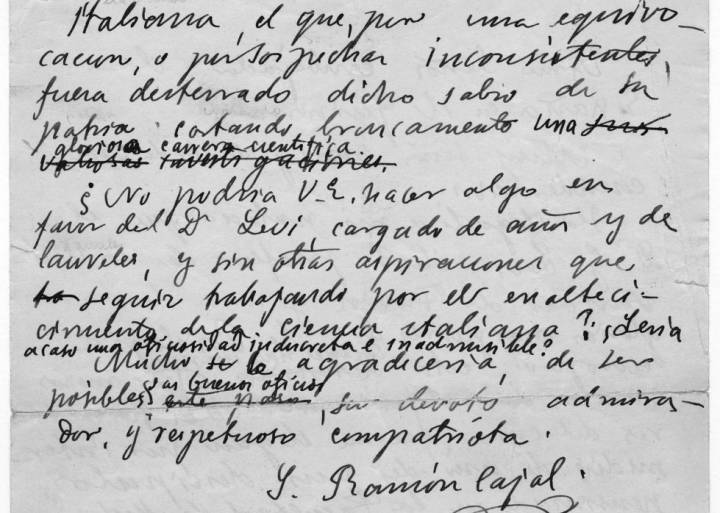 Italiana, el que, por una equivo-
cacion, o por sospechar inconsistentes,
fuera desterrado dicho sabio de su
patria cortando bruscamente una sus
gloriosa carrera cientifica.
valiosas investigaciones.
¿No podria V.E. hacer algo en
favor del Dr Levi, cargado de años y de
laureles, y sin otras aspiraciones que
seguir trabajando por el enalteci-
cimiento de la ciencia italiana? ¿Seria
acaso una oficiosidad indiscreta e inadmisible?
Mucho se le agradeceria, de ser
posibles sus buenos oficios
este paso, su devoto admira-
dor, y respetuoso compatriota.
S. Ramón Cajal.